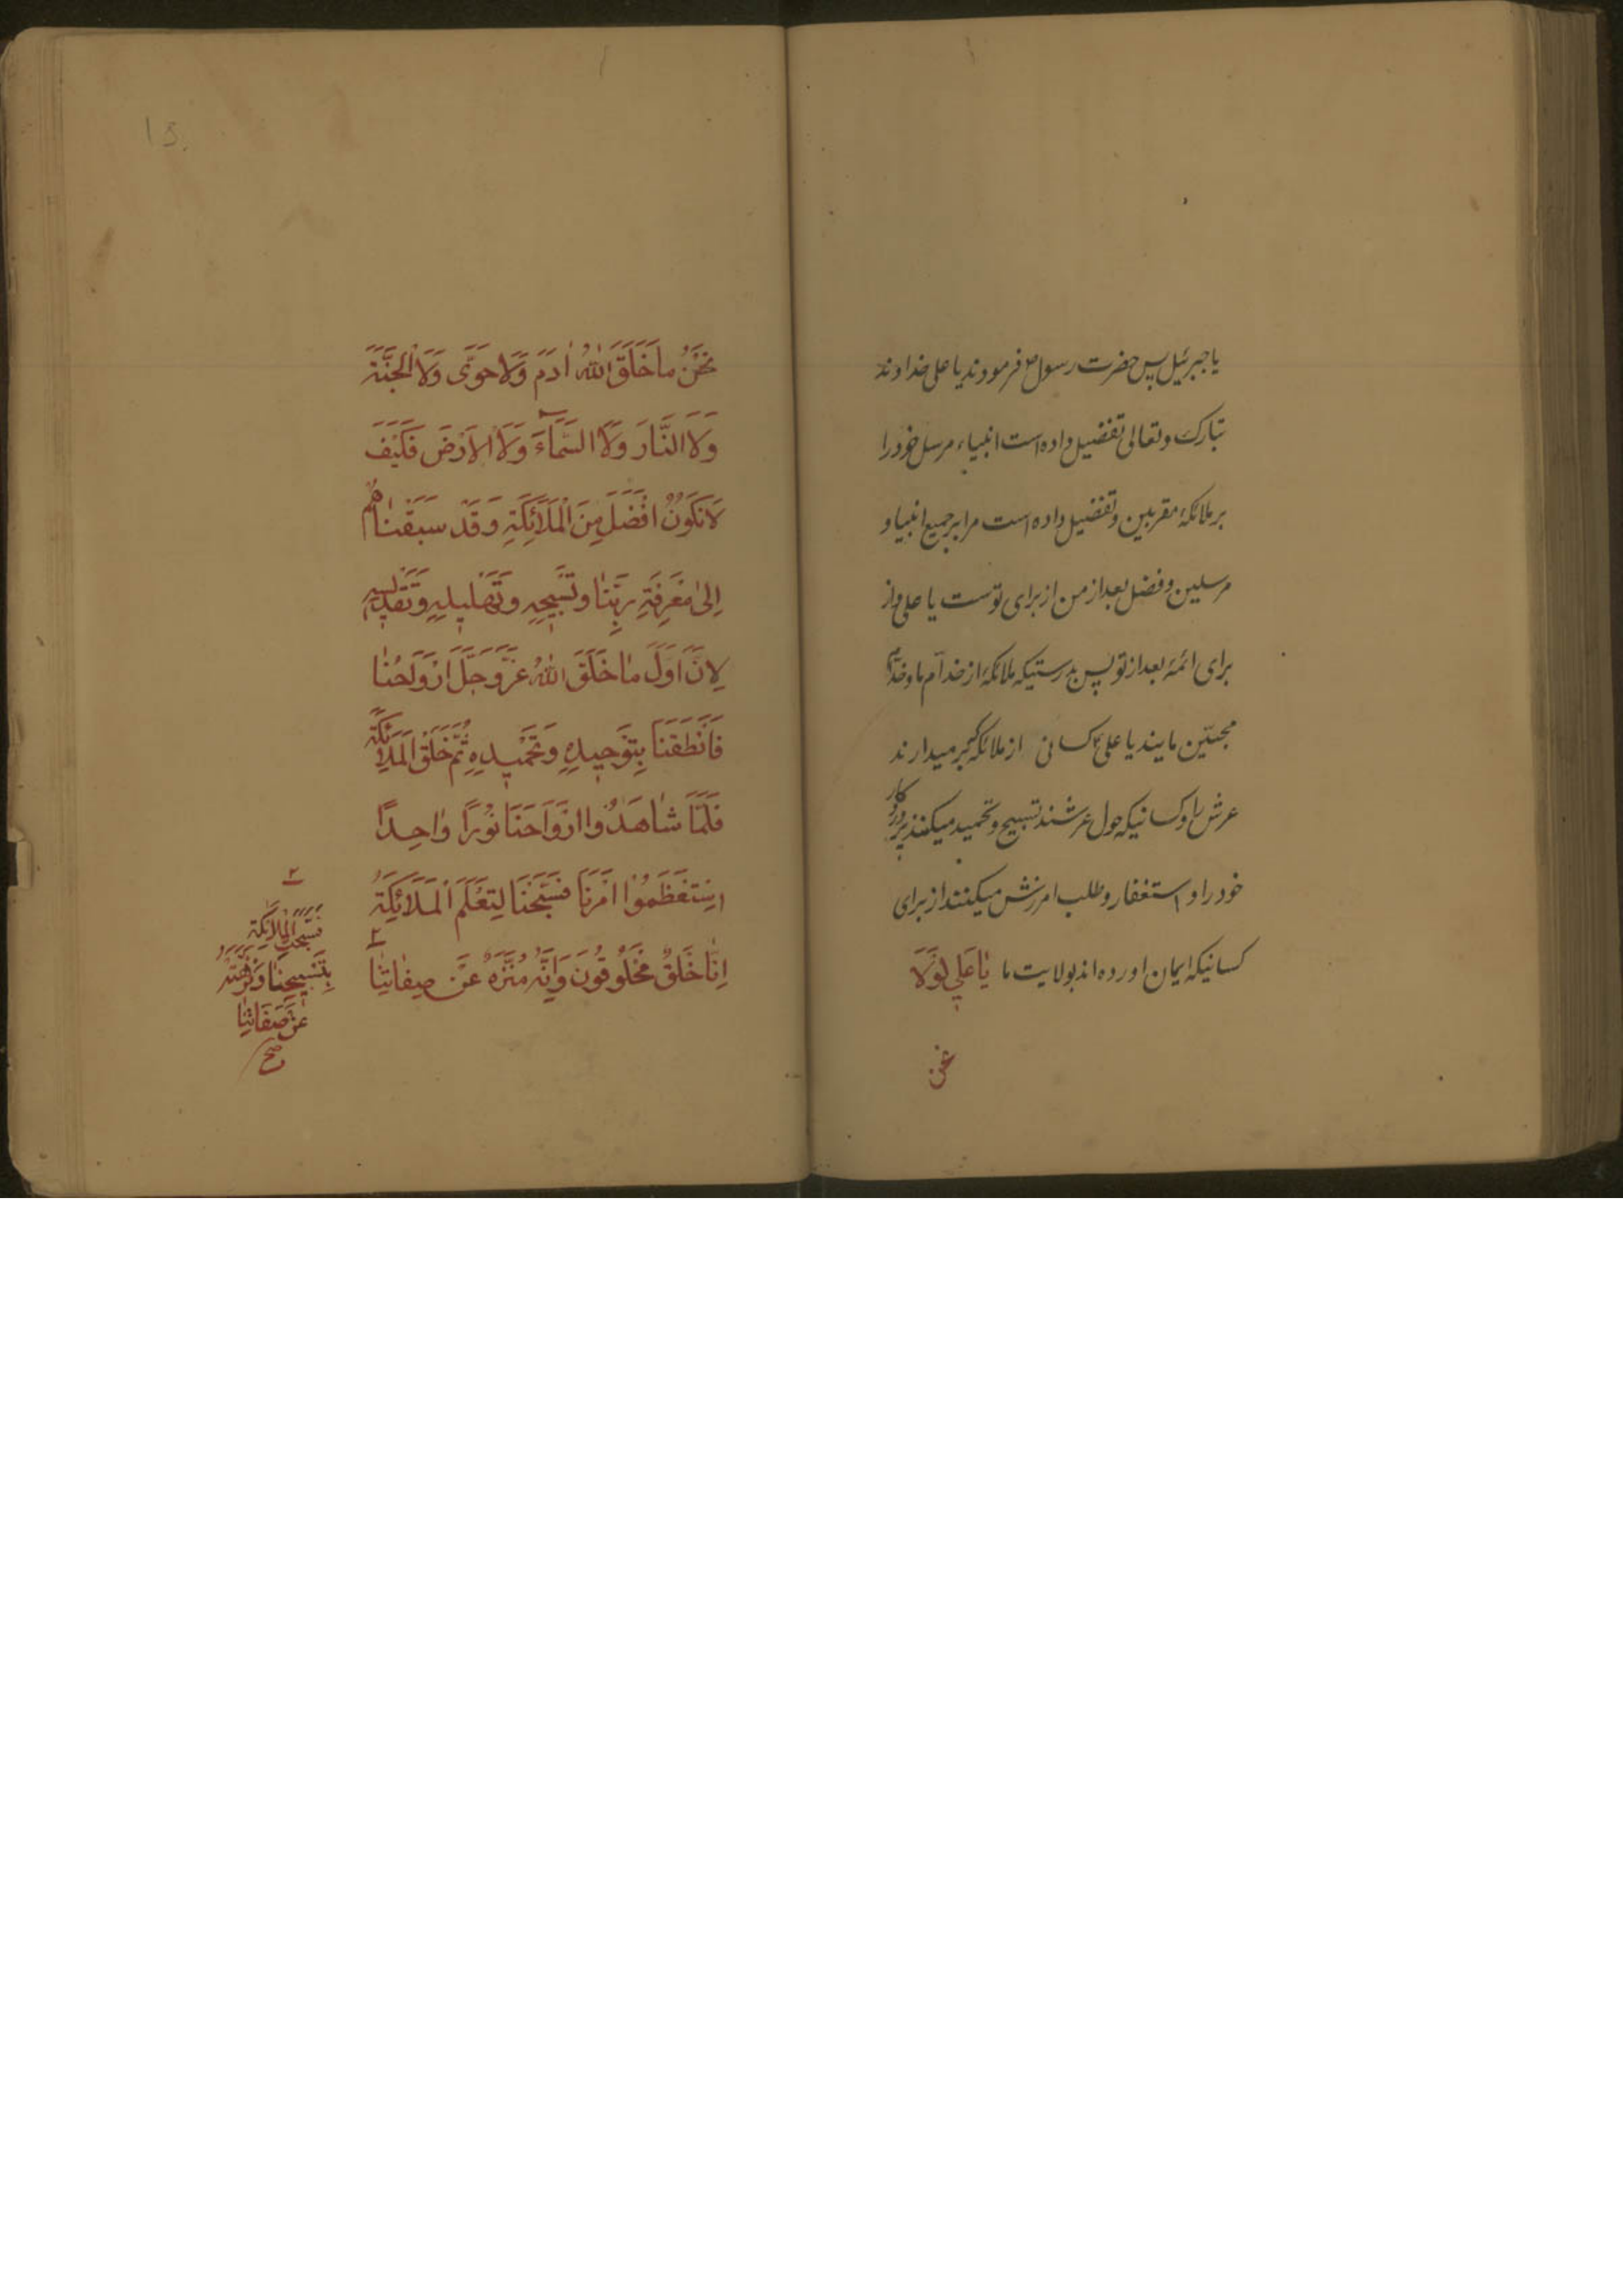 یا جبرئیل پس حضرت رسول ص فرمودند یا علی خداوند
تبارک وتعالی تفضیل داده است انبیاء مرسل خود را
بر ملائکهٔ مقربین وتفضیل داده است مرا بر جمیع انبیا و
مرسلین وفضل بعد از من از برای توست یا علی واز
برای ائمهٔ بعد از تو پس بدرستیکه ملائکه از خدام ما وخدام
محبّین مایند یا علی کسانی از ملائکه که بر میدارند
عرش را وکسانیکه حول عرشند تسبیح وتحمید میکنند پروردکار
خود را و استغفار وطلب امرزش میکنند از برای
کسانیکه ایمان اورده اند بولایت ما یٰا عَلِي لَوْلَا
نحن
15
نَحْنُ ماخَلَقَ اللهُ اٰدَمَ وَلَا حَوّٰى وَلَا الْجَنَّةَ
وَلَا النَّارَ وَلَا السَّمٰآءَ وَلَا الْاَرْضَ فَكَيْفَ
لَانَكُونُ اَفْضَلَ مِنَ الْمَلَآئِكَةِ وَقَدْ سَبَقْنٰاهُم
اِلىٰ مَعْرِفَةِ رَبِّنٰا وتَسْبِيحِهِ وتَهْلِيلِهِ وَتَقْدِيسِهِ
لِاَنَّ اَوَّلَ مٰا خَلَقَ اللهُ عَزَّوَجَلَّ اَرْوٰاحُنٰا
فَاَنْطَقَنَا بِتَوْحِيدِهِ وَتَحْمِيدِهِ ثُمَّ خَلَقَ الْمَلَائِكَةَ
فَلَمّٰا شٰاهَدُوا اَرْوَاحَنَا نُورًا وٰاحِدًا
اِسْتَعْظَمُوا اَمْرَنَا فَسَبَّحْنَا لِتَعْلَمَ الْمَلَائِكَةُ
اِنّٰا خَلْقٌ مَخْلُوقُونَ وَاَنَّهُ مُنَزَّهٌ عَنْ صِفٰاتِنٰا
٢
فَسَبَّحَتِ الْمَلَائِكَةُ
بِتَسْبِيحِنٰا وَنَزَّهَتْهُ
عَنْ صِفَاتِنٰا
صح